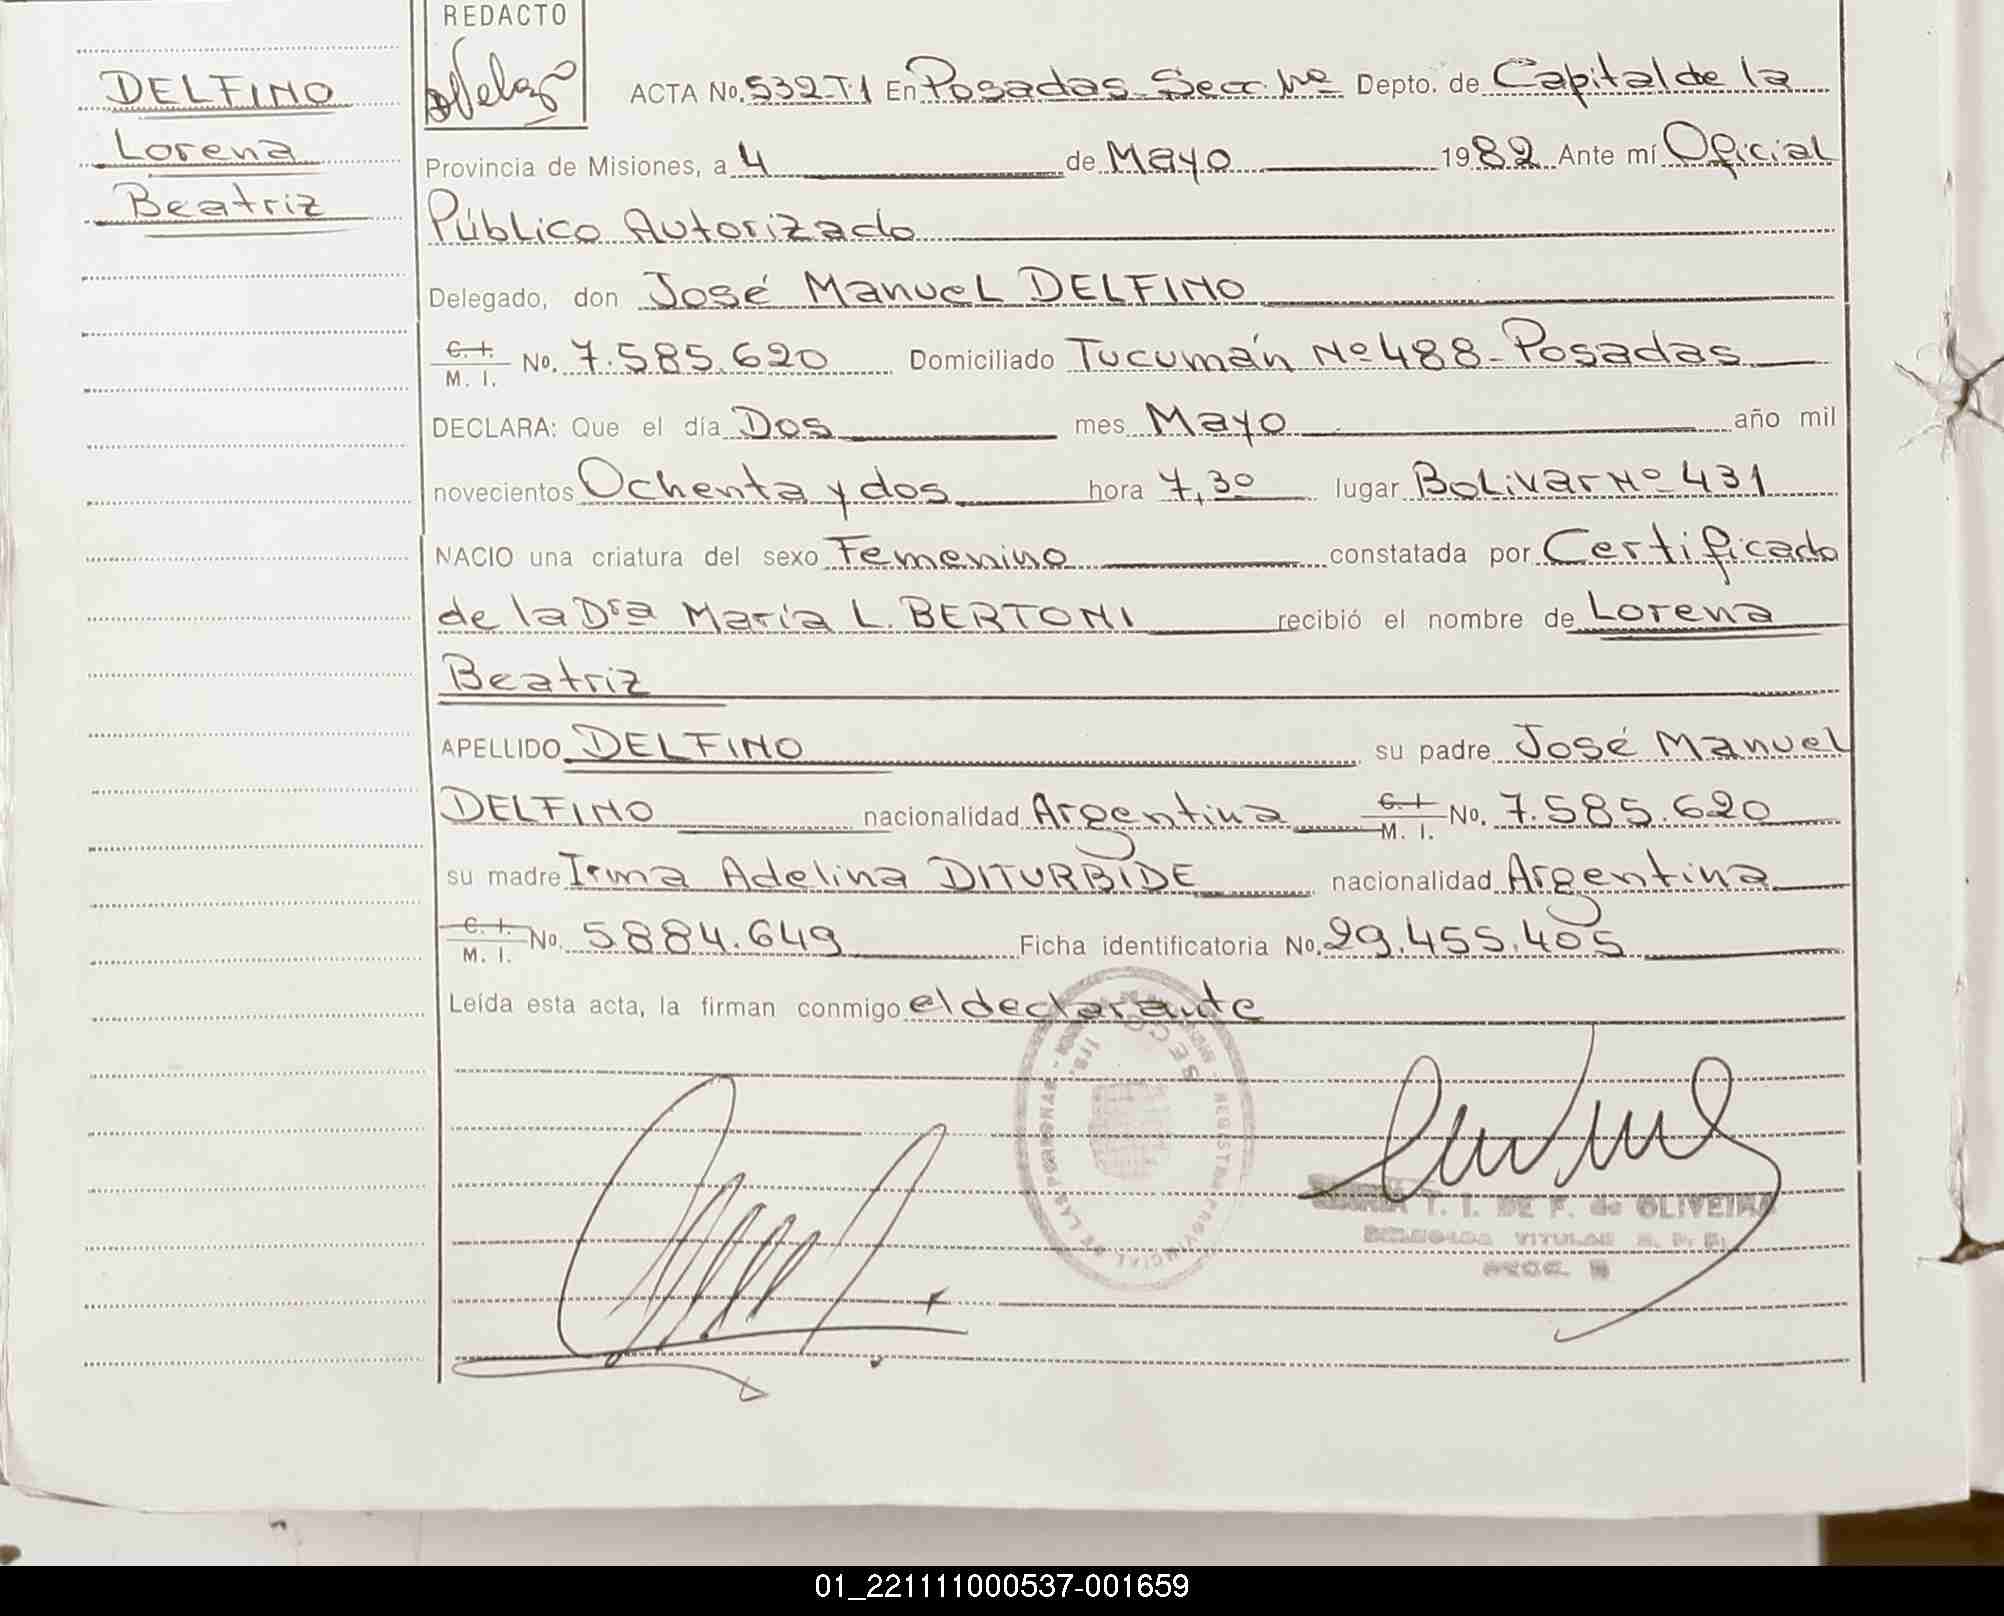 REDACTO
DELFINO
Lorena
Beatriz
ACTA No. 532-T.1 En Posadas Secc. Depto. de Capital de la
Provincia de Misiones, a 4 de Mayo 1982 Ante mí Oficial
Público Autorizado
Delegado, don José Manuel DELFINO
C. I. M. I. No. 7.585.620 Domiciliado Tucumán Nº 488 - Posadas
DECLARA: Que el día Dos mes Mayo año mil
novecientos Ochenta y dos hora 7,30 lugar Bolivar Nº 431
NACIO una criatura del sexo Femenino constatada por Certificado
de la Dra María L. BERTONI recibió el nombre de Lorena
Beatriz
APELLIDO DELFINO su padre José Manuel
DELFINO nacionalidad Argentina C. I. M. I. No. 7.585.620
su madre Irma Adelina DITURBIDE nacionalidad Argentina
C. I. M. I. No. 5.884.649 Ficha identificatoria No. 29.455.405
Leída esta acta, la firman conmigo el declarante
T. I. DE F. de OLIVEIRA
01_221111000537-001659